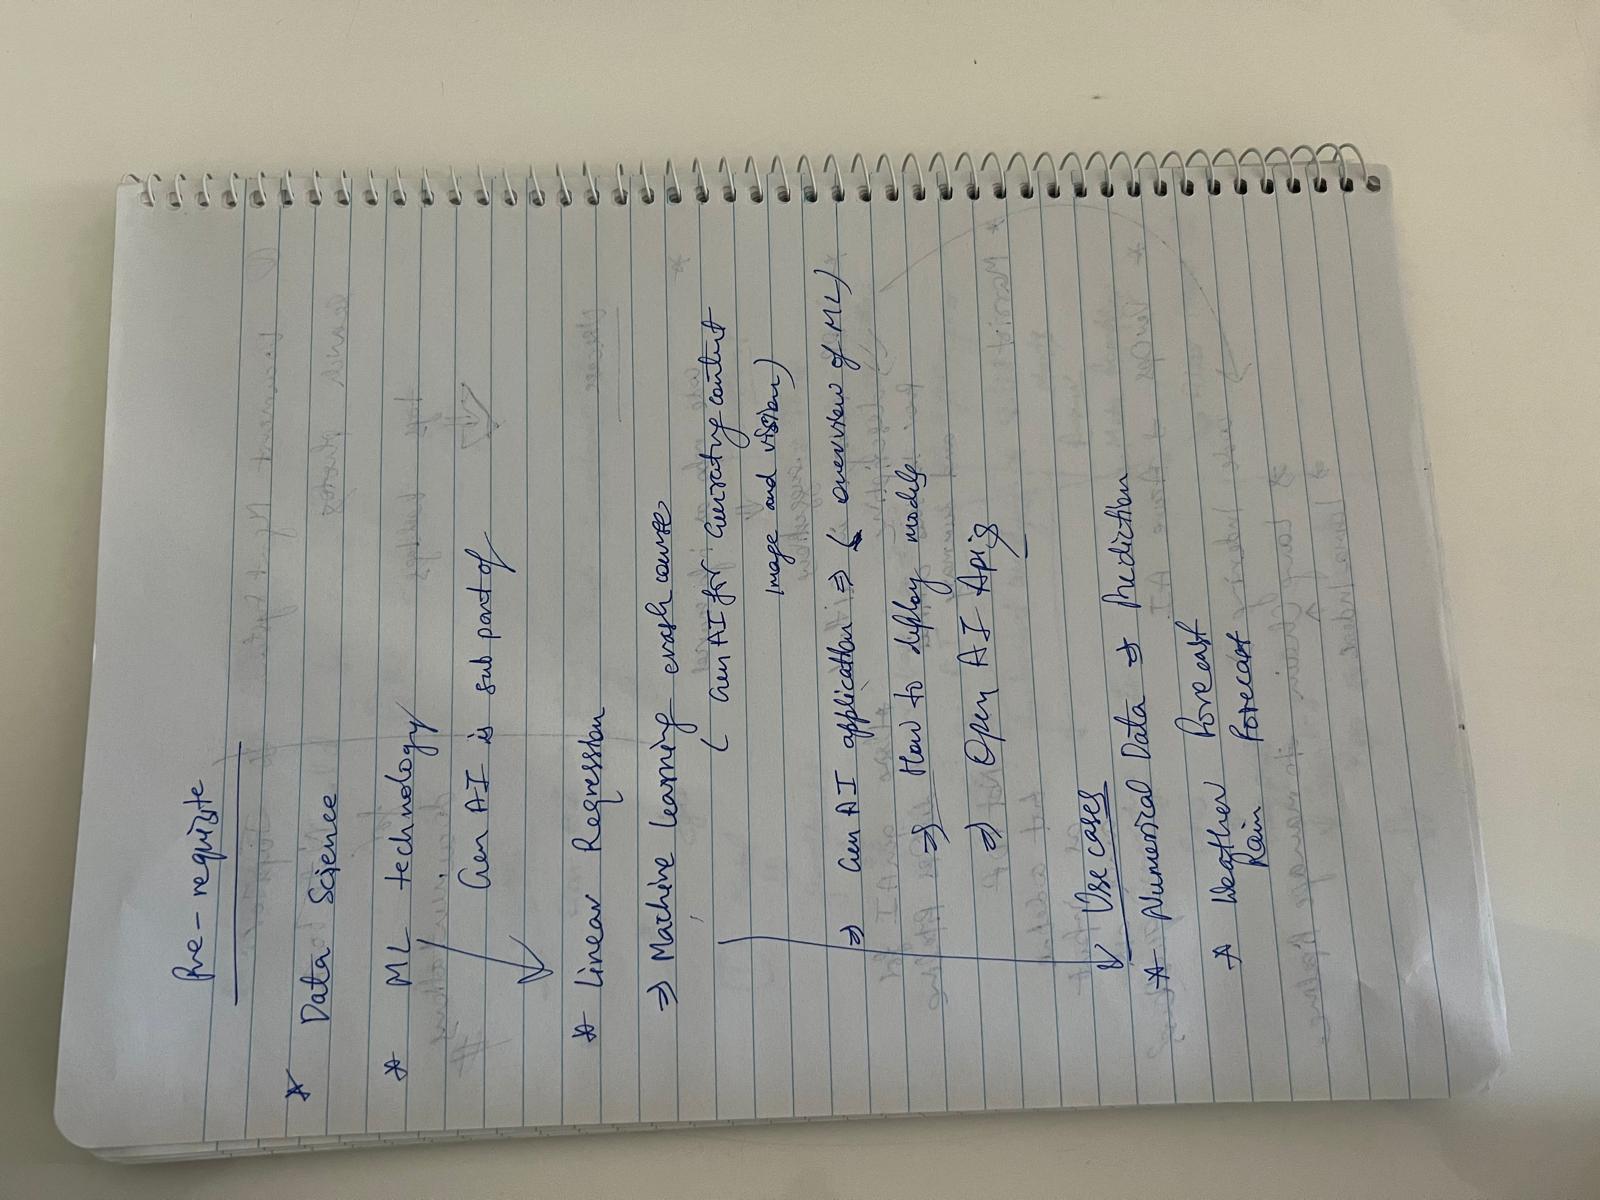 Pre-requisite
* Data Science
* ML technology
Gen AI is sub part of
* Linear Regression
⇒ Machine Learning crash course
( Gen AI for Generating content
Image and vision)
⇒ Gen AI application ⇒ ( overview of ML)
⇒ How to deploy models
⇒ Open AI Apis
Use cases
* Numerical Data ⇒ Prediction
* Weather Forecast
Rain Forecast